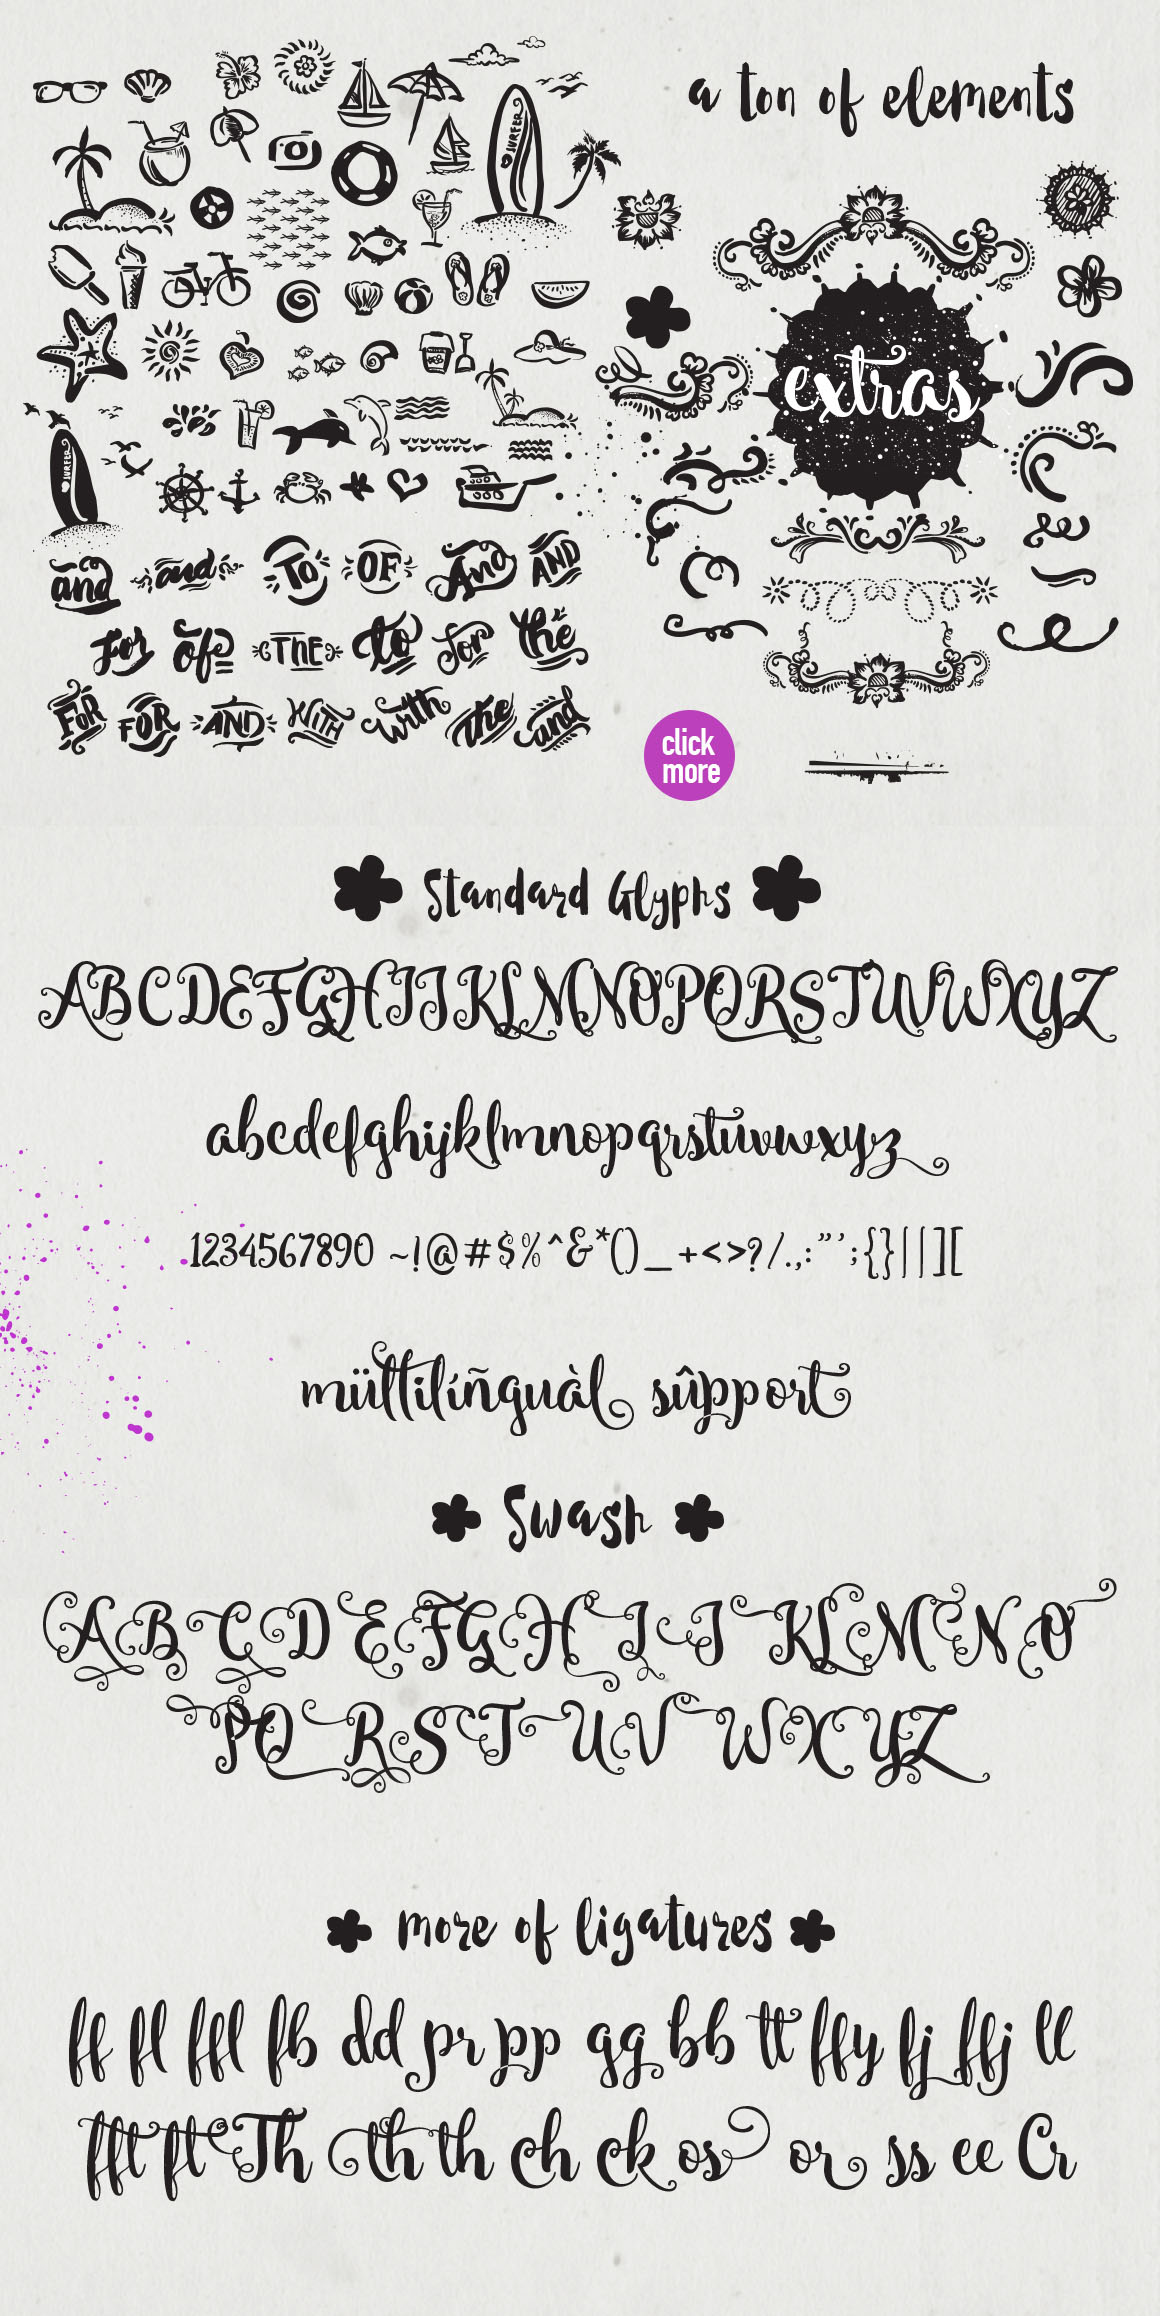 a ton of elements
SURFER
extras
SURFER
and and To OF And AND
for of THE to for the
FOR FOR AND WITH with the and
click
more
Standard Glyphs
ABCDEFGHIJKLMNOPQRSTUVWXYZ
abcdefghijklmnopqrstuvwxyz
1234567890 ~!@#$%^&*()_+<>?/.,:”’;{}||][
mültilíñguàl sûpport
Swash
ABCDEFGHIJKLMNO
PQRSTUVWXYZ
more of ligatures
ff fl ffl fb dd pr pp gg bb tt ffy fj ffj ll
fft ft Th th th ch ck os or ss ee Cr